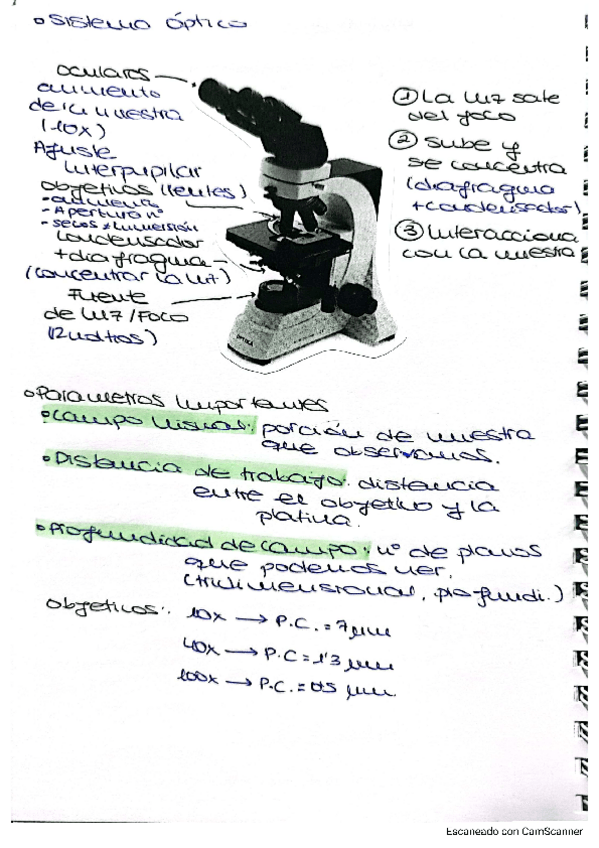 • Sistema óptico
oculares
aumento
de la muestra
(10x)
Ajuste
interpupilar
objetivos (lentes)
- aumento
- Apertura nº
- secos ≠ inmersión
condensador
+ diafragma
(concentrar la luz)
Fuente
de luz / Foco
OPTIKA
① La luz sale
del foco
② Sube y
se concentra
(diafragma
+ condensador)
③ Interacciona
con la muestra
• Parametros importantes
• Campo visual: porción de muestra
que observamos.
• Distancia de trabajo: distancia
entre el objetivo y la
platina.
• Profundidad de campo: nº de planos
que podemos ver.
(tridimensional, profundi.)
objetivos: 10x → P.C. = 7 μm
40x → P.C = 1'3 μm
100x → P.C. = 0'5 μm
Escaneado con CamScanner